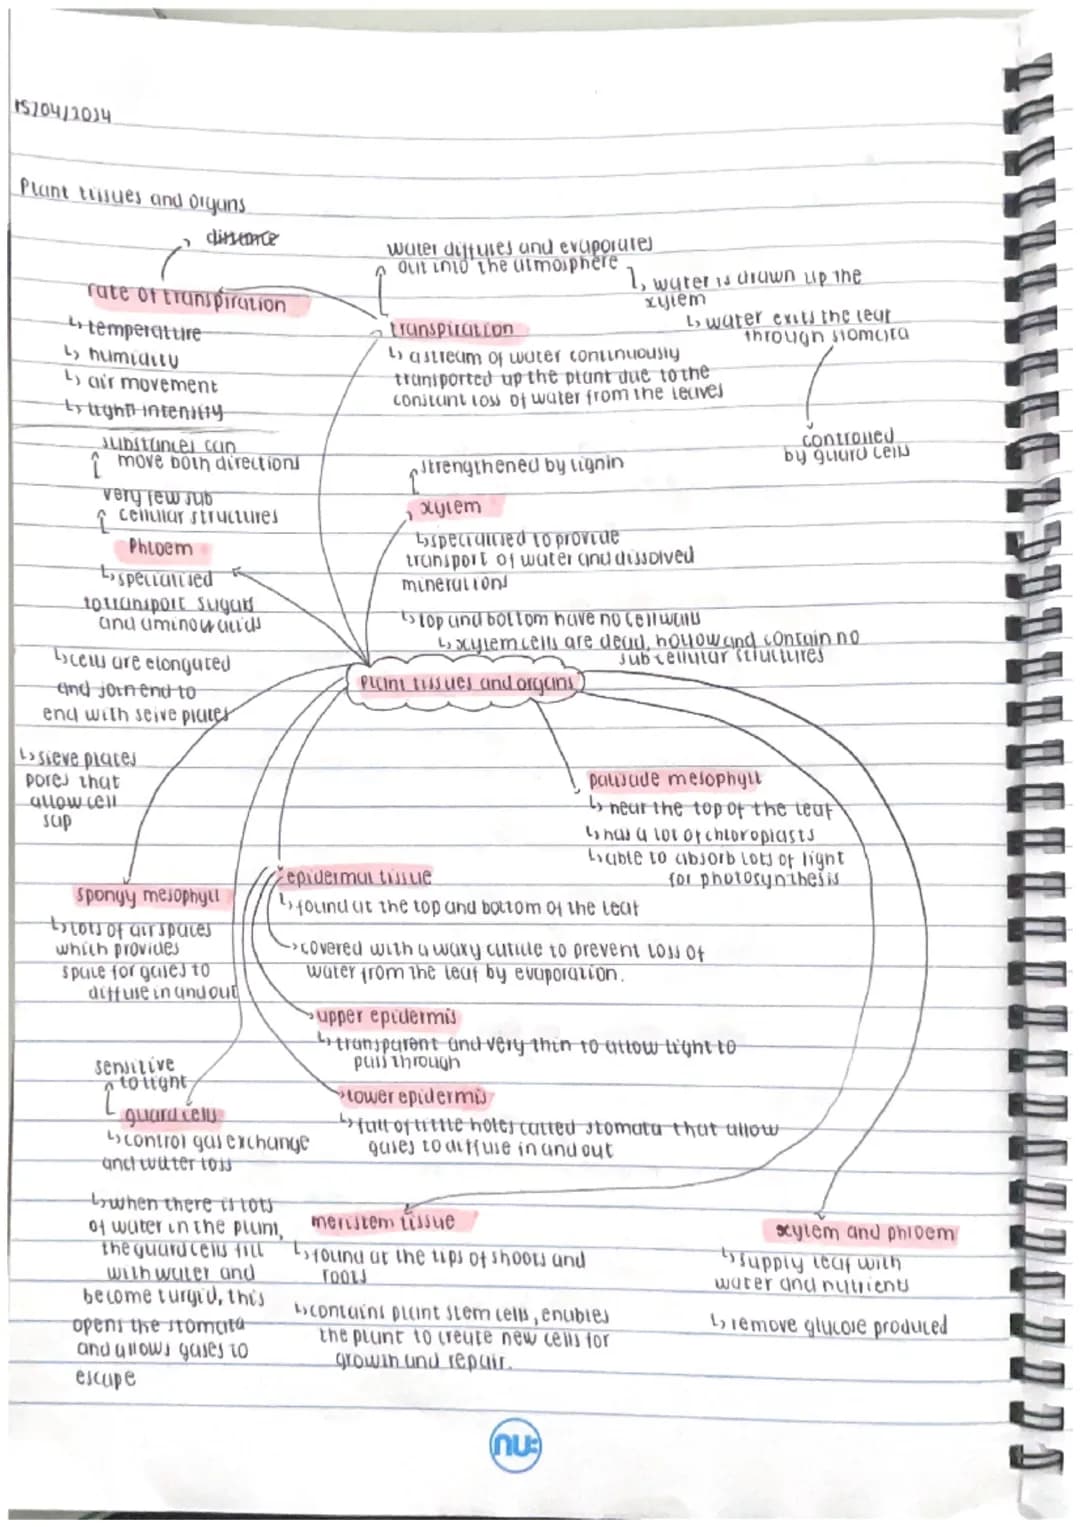 15/04/2024
Plant tissues and organs
distance
rate of transpiration
↳ temperature
↳ humidity
↳ air movement
↳ light intensity
water diffuses and evaporates
out into the atmosphere
↳ water is drawn up the
xylem
↳ water exits the leaf
through stomata
controlled
by guard cells
transpiration
↳ a stream of water continuously
transported up the plant due to the
constant loss of water from the leaves
substances can
move both directions
very few sub
cellular structures
Phloem
↳ specialised
to transport sugars
and amino acids
↳ cells are elongated
and join end to
end with seive plates
↳ sieve plates
pores that
allow cell
sap
strengthened by lignin
xylem
↳ specialised to provide
transport of water and dissolved
mineral ions
↳ top and bottom have no cell walls
↳ xylem cells are dead, hollow and contain no
sub cellular structures
Plant tissues and organs
palisade mesophyll
↳ near the top of the leaf
↳ has a lot of chloroplasts
↳ able to absorb lots of light
for photosynthesis
spongy mesophyll
↳ lots of air spaces
which provides
space for gases to
diffuse in and out
epidermal tissue
↳ found at the top and bottom of the leaf
covered with a waxy cuticle to prevent loss of
water from the leaf by evaporation.
upper epidermis
↳ transparent and very thin to allow light to
pass through
lower epidermis
↳ full of little holes called stomata that allow
gases to diffuse in and out
sensitive
to light
guard cells
↳ control gas exchange
and water loss
↳ when there is lots
of water in the plant,
the guard cells fill
with water and
become turgid, this
opens the stomata
and allows gases to
escape
meristem tissue
↳ found at the tips of shoots and
roots
↳ contains plant stem cells, enables
the plant to create new cells for
growth and repair.
xylem and phloem
↳ supply leaf with
water and nutrients
↳ remove glucose produced
nu: